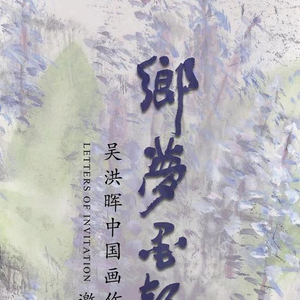 鄉夢墨
吴洪晖中国画作
LETTERS OF INVITATION
邀